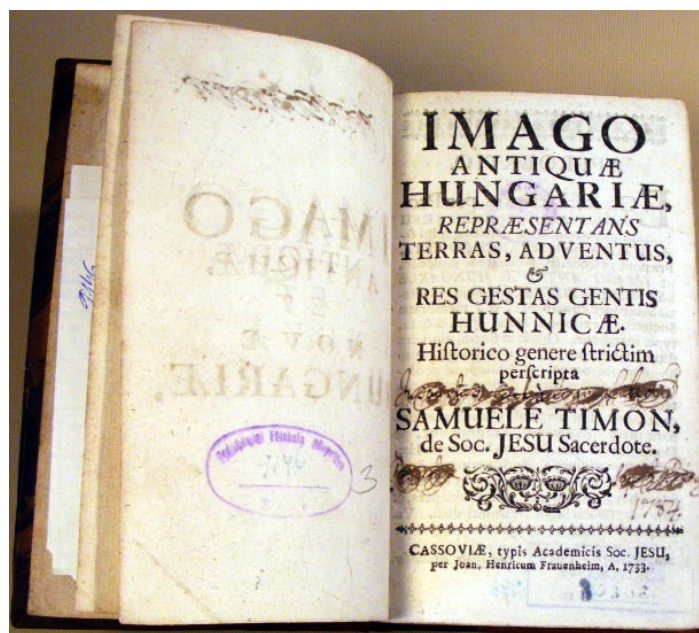 9146
9146
3
IMAGO
ANTIQUÆ
HUNGARIÆ,
REPRÆSENTANS
TERRAS, ADVENTUS,
&
RES GESTAS GENTIS
HUNNICÆ.
Hiſtorico genere ſtrictim
perſcripta
SAMUELE TIMON,
de Soc. JESU Sacerdote.
1737.
CASSOVIÆ, typis Academicis Soc. JESU,
per Joan. Henricum Frauenheim, A. 1733.